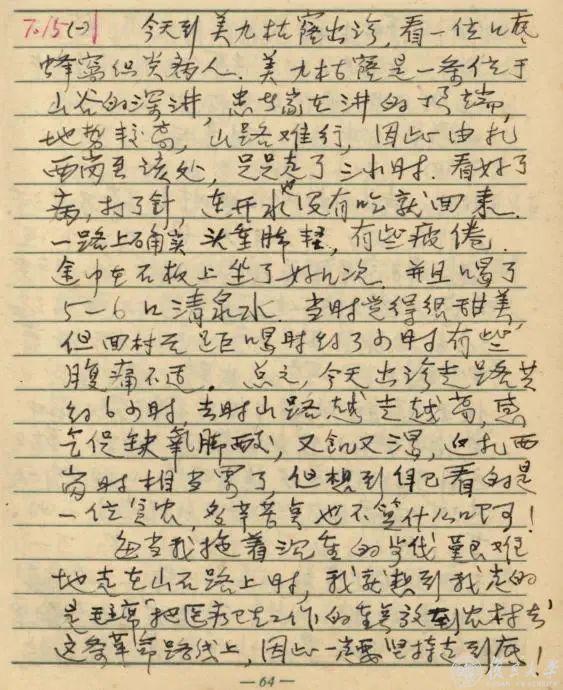 7.15(一) 今天到美九枯窑出诊,看一位口底
蜂窝织炎病人.美九枯窑是一条位于
山谷的深讲,患者家在讲的顶端,
地势较高,山路难行,因此由扎
西岗至该处,足足走了三小时.看好了
病,打了针,连开水也没有吃就回来.
一路上确实头重脚轻,有些疲倦.
途中在石板上坐了好几次.并且喝了
5-6口清泉水.当时觉得很甜美,
但回村至距喝时约了小时有些
腹痛不适.总之,今天出诊走路共
约6小时,去时山路越走越高,感
气促缺氧脚酸,又饥又渴,返扎西
岗时相当累了,但想到自己看的是
一位贫农,多辛苦点也不算什么呵!
每当我拖着沉重的步伐艰难
地走在山石路上时,我就想到我走的
是毛主席"把医疗卫生工作的重点放到农村去"
这条革命路线上,因此一定要坚持走到底!
—64—
復旦大學